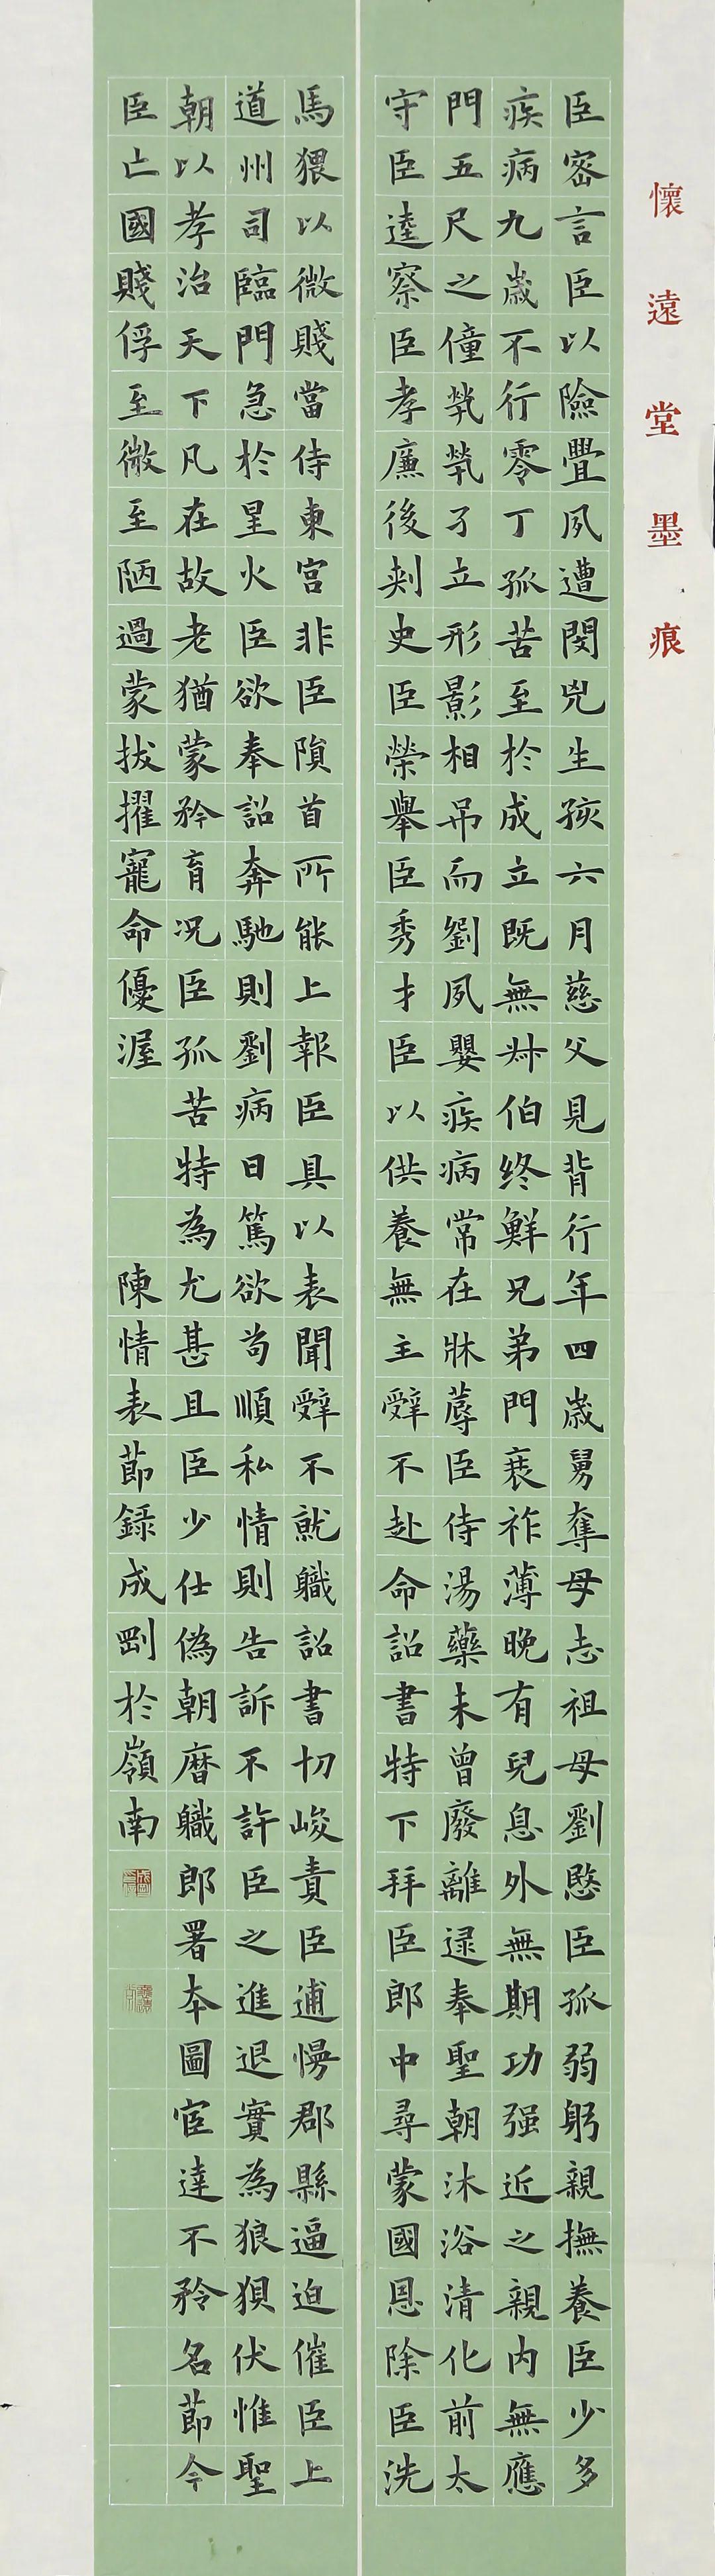 懷遠堂墨痕
臣密言臣以險舋夙遭閔兇生孩六月慈父見背行年四歲舅奪母志祖母劉愍臣孤弱躬親撫養臣少多
疾病九歲不行零丁孤苦至於成立既無叔伯終鮮兄弟門衰祚薄晚有兒息外無期功强近之親内無應
門五尺之僮煢煢孑立形影相吊而劉夙嬰疾病常在牀蓐臣侍湯藥未曾廢離逮奉聖朝沐浴清化前太
守臣逵察臣孝廉後刺史臣榮舉臣秀才臣以供養無主辭不赴命詔書特下拜臣郎中尋蒙國恩除臣洗
馬猥以微賤當侍東宮非臣隕首所能上報臣具以表聞辭不就職詔書切峻責臣逋慢郡縣逼迫催臣上
道州司臨門急於星火臣欲奉詔奔馳則劉病日篤欲苟順私情則告訴不許臣之進退實為狼狽伏惟聖
朝以孝治天下凡在故老猶蒙矜育況臣孤苦特為尤甚且臣少仕偽朝歷職郎署本圖宦達不矜名節今
臣亡國賤俘至微至陋過蒙拔擢寵命優渥 陳情表節錄成剛於嶺南